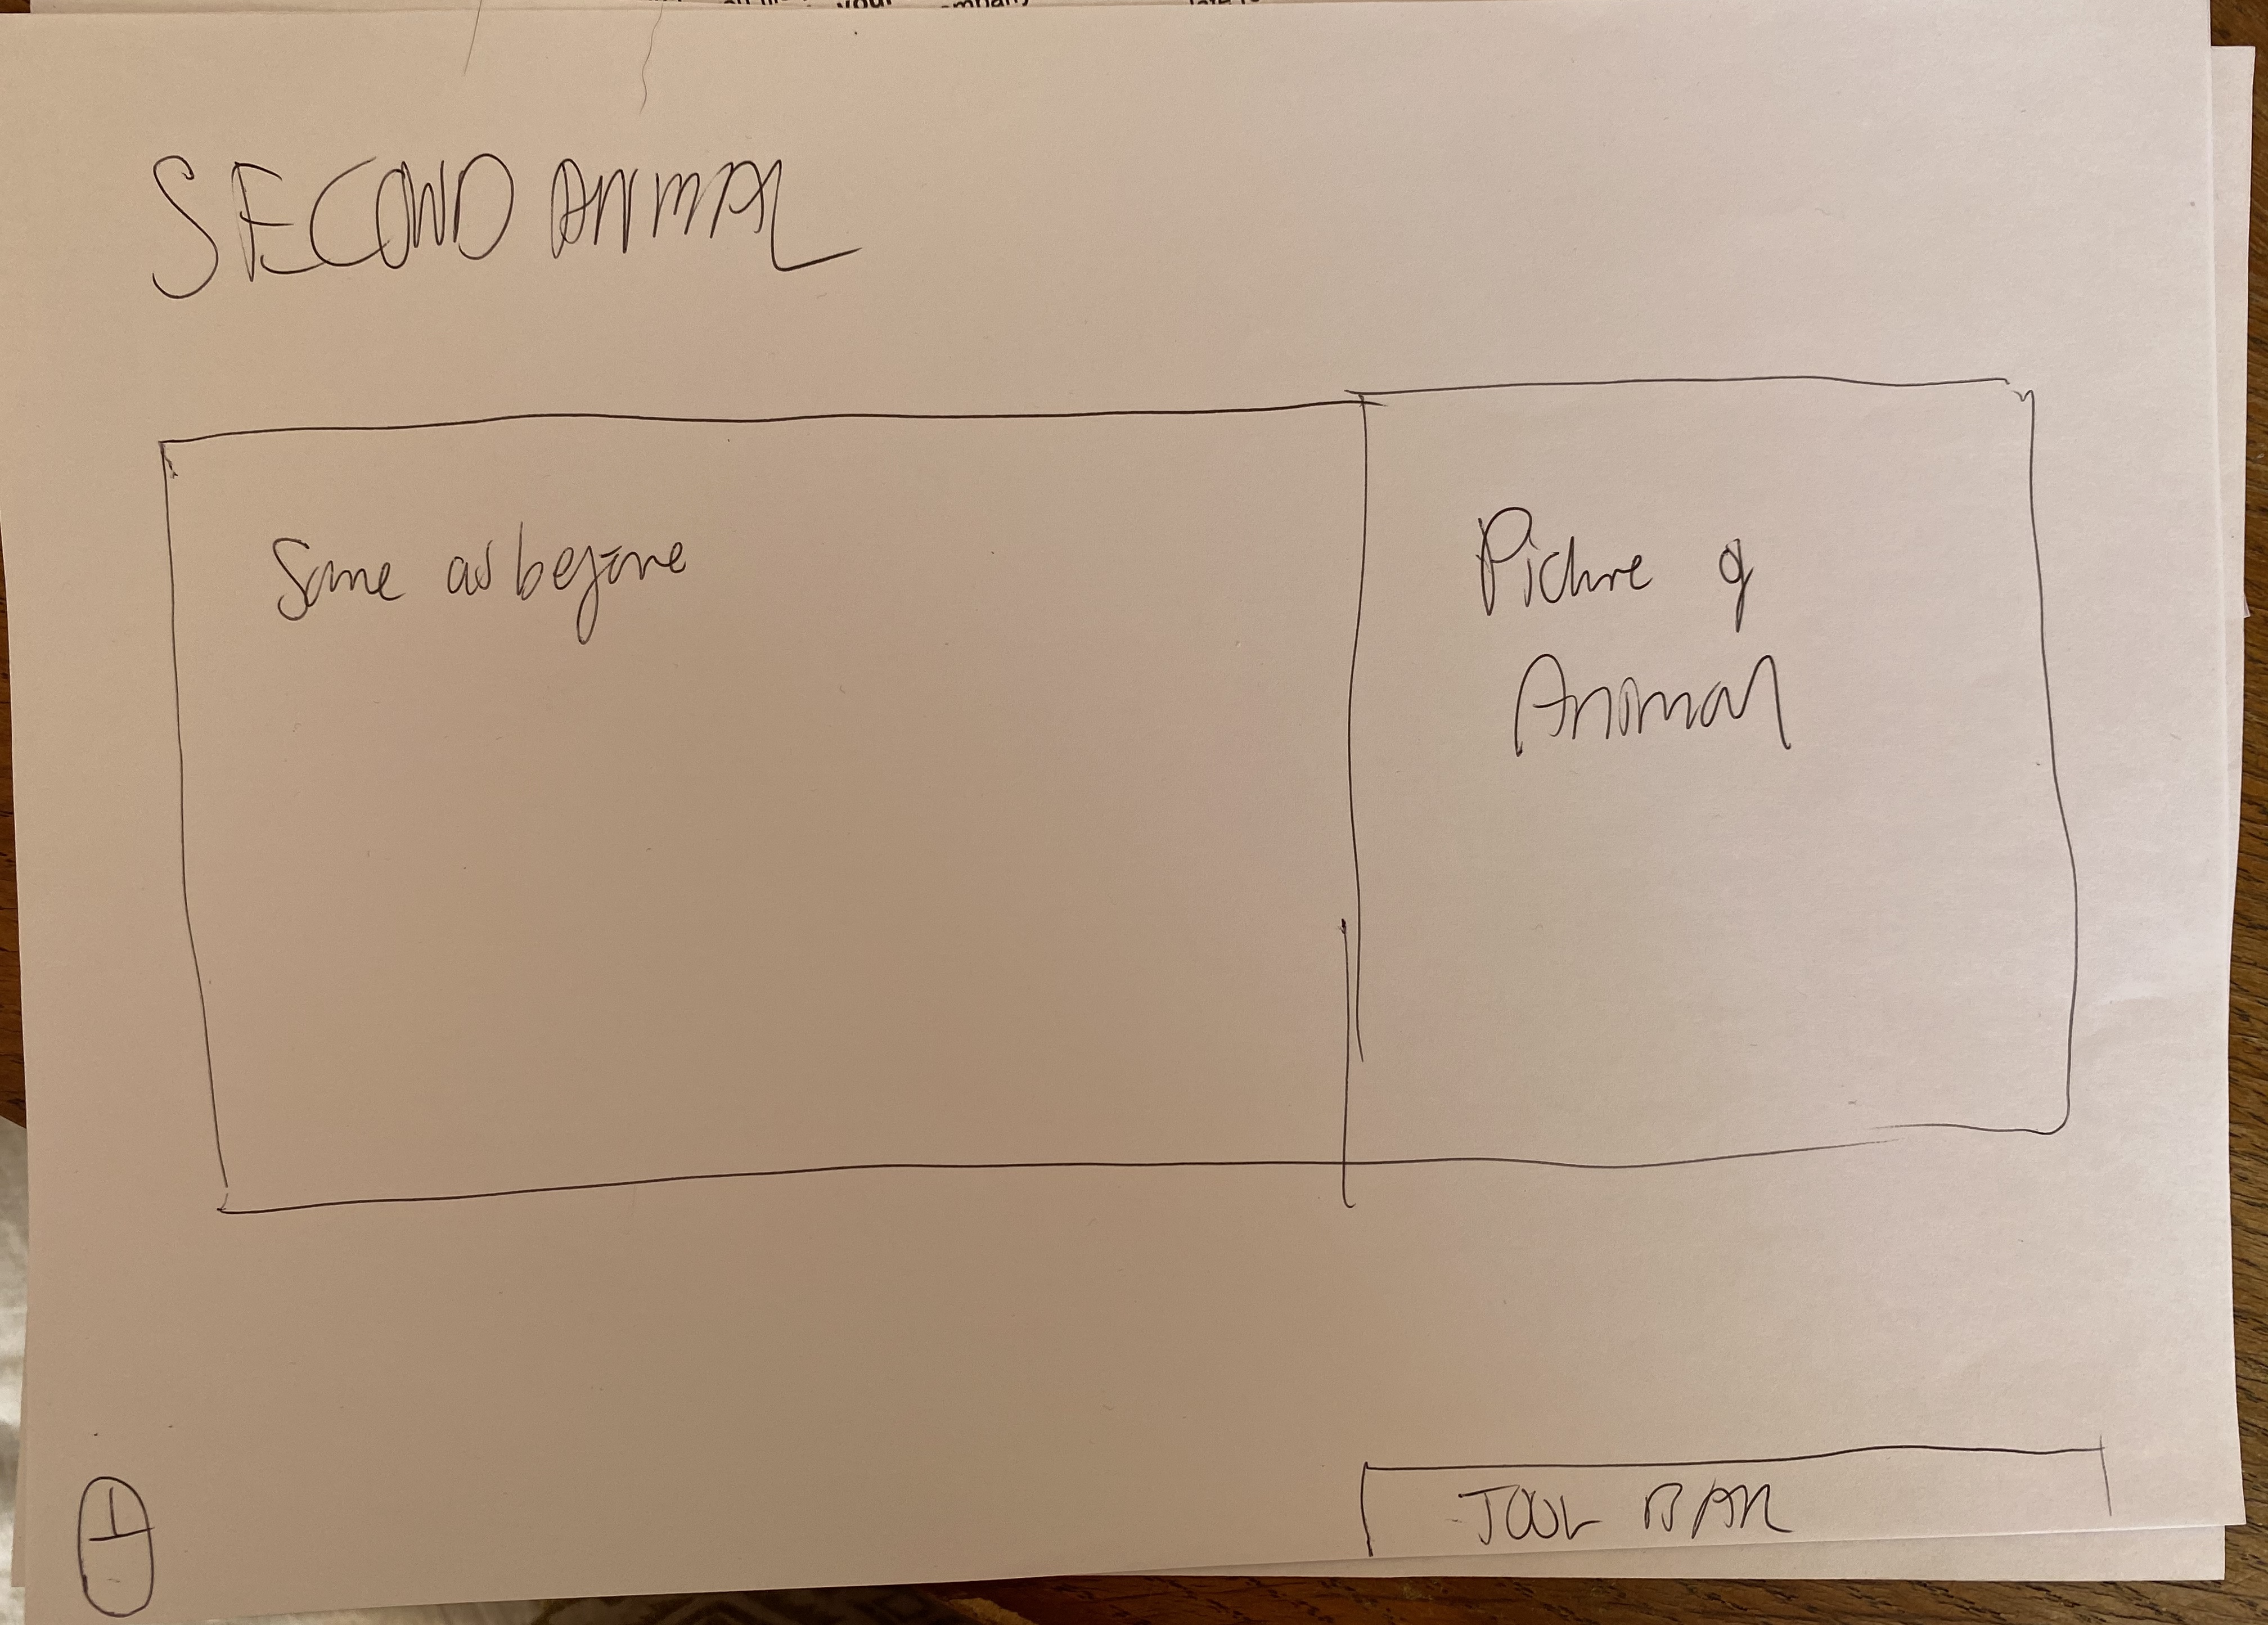 your
SECOND ANIMAL
Same as before
Picture of
Animal
TOOL BAR